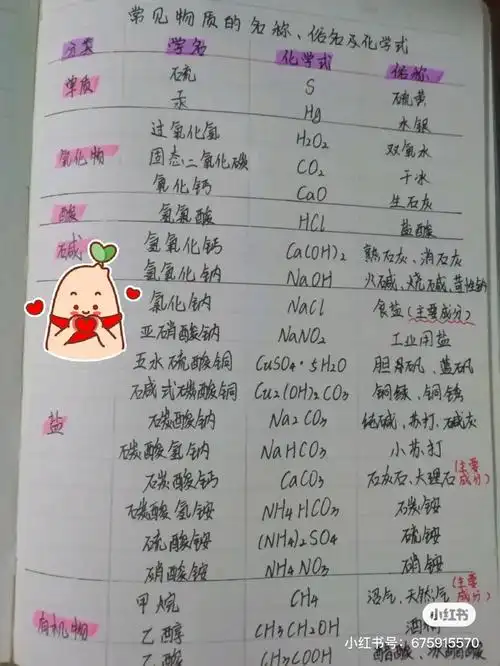 常见物质的名称、俗名及化学式
分类 学名 化学式 俗称
单质 硫 S 硫黄
汞 Hg 水银
过氧化氢 H2O2 双氧水
氧化物 固态二氧化碳 CO2 干冰
氧化钙 CaO 生石灰
酸 氢氯酸 HCl 盐酸
碱 氢氧化钙 Ca(OH)2 熟石灰、消石灰
氢氧化钠 NaOH 火碱、烧碱、苛性钠
氯化钠 NaCl 食盐(主要成分)
亚硝酸钠 NaNO2 工业用盐
五水硫酸铜 CuSO4·5H2O 胆矾、蓝矾
碱式碳酸铜 Cu2(OH)2CO3 铜绿、铜锈
盐 碳酸钠 Na2CO3 纯碱、苏打、碱灰
碳酸氢钠 NaHCO3 小苏打
碳酸钙 CaCO3 石灰石、大理石(主要成分)
碳酸氢铵 NH4HCO3 碳铵
硫酸铵 (NH4)2SO4 硫铵
硝酸铵 NH4NO3 硝铵
甲烷 CH4 沼气、天然气(主要成分)
有机物 乙醇 CH3CH2OH 酒
乙酸 CH3COOH 醋酸、冰醋酸
小红书
小红书号：675915570